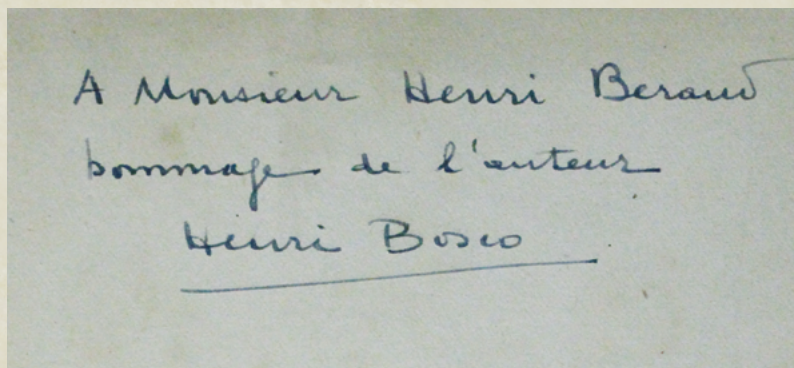 A Monsieur Henri Beraud
hommage de l'auteur
Henri Bosco